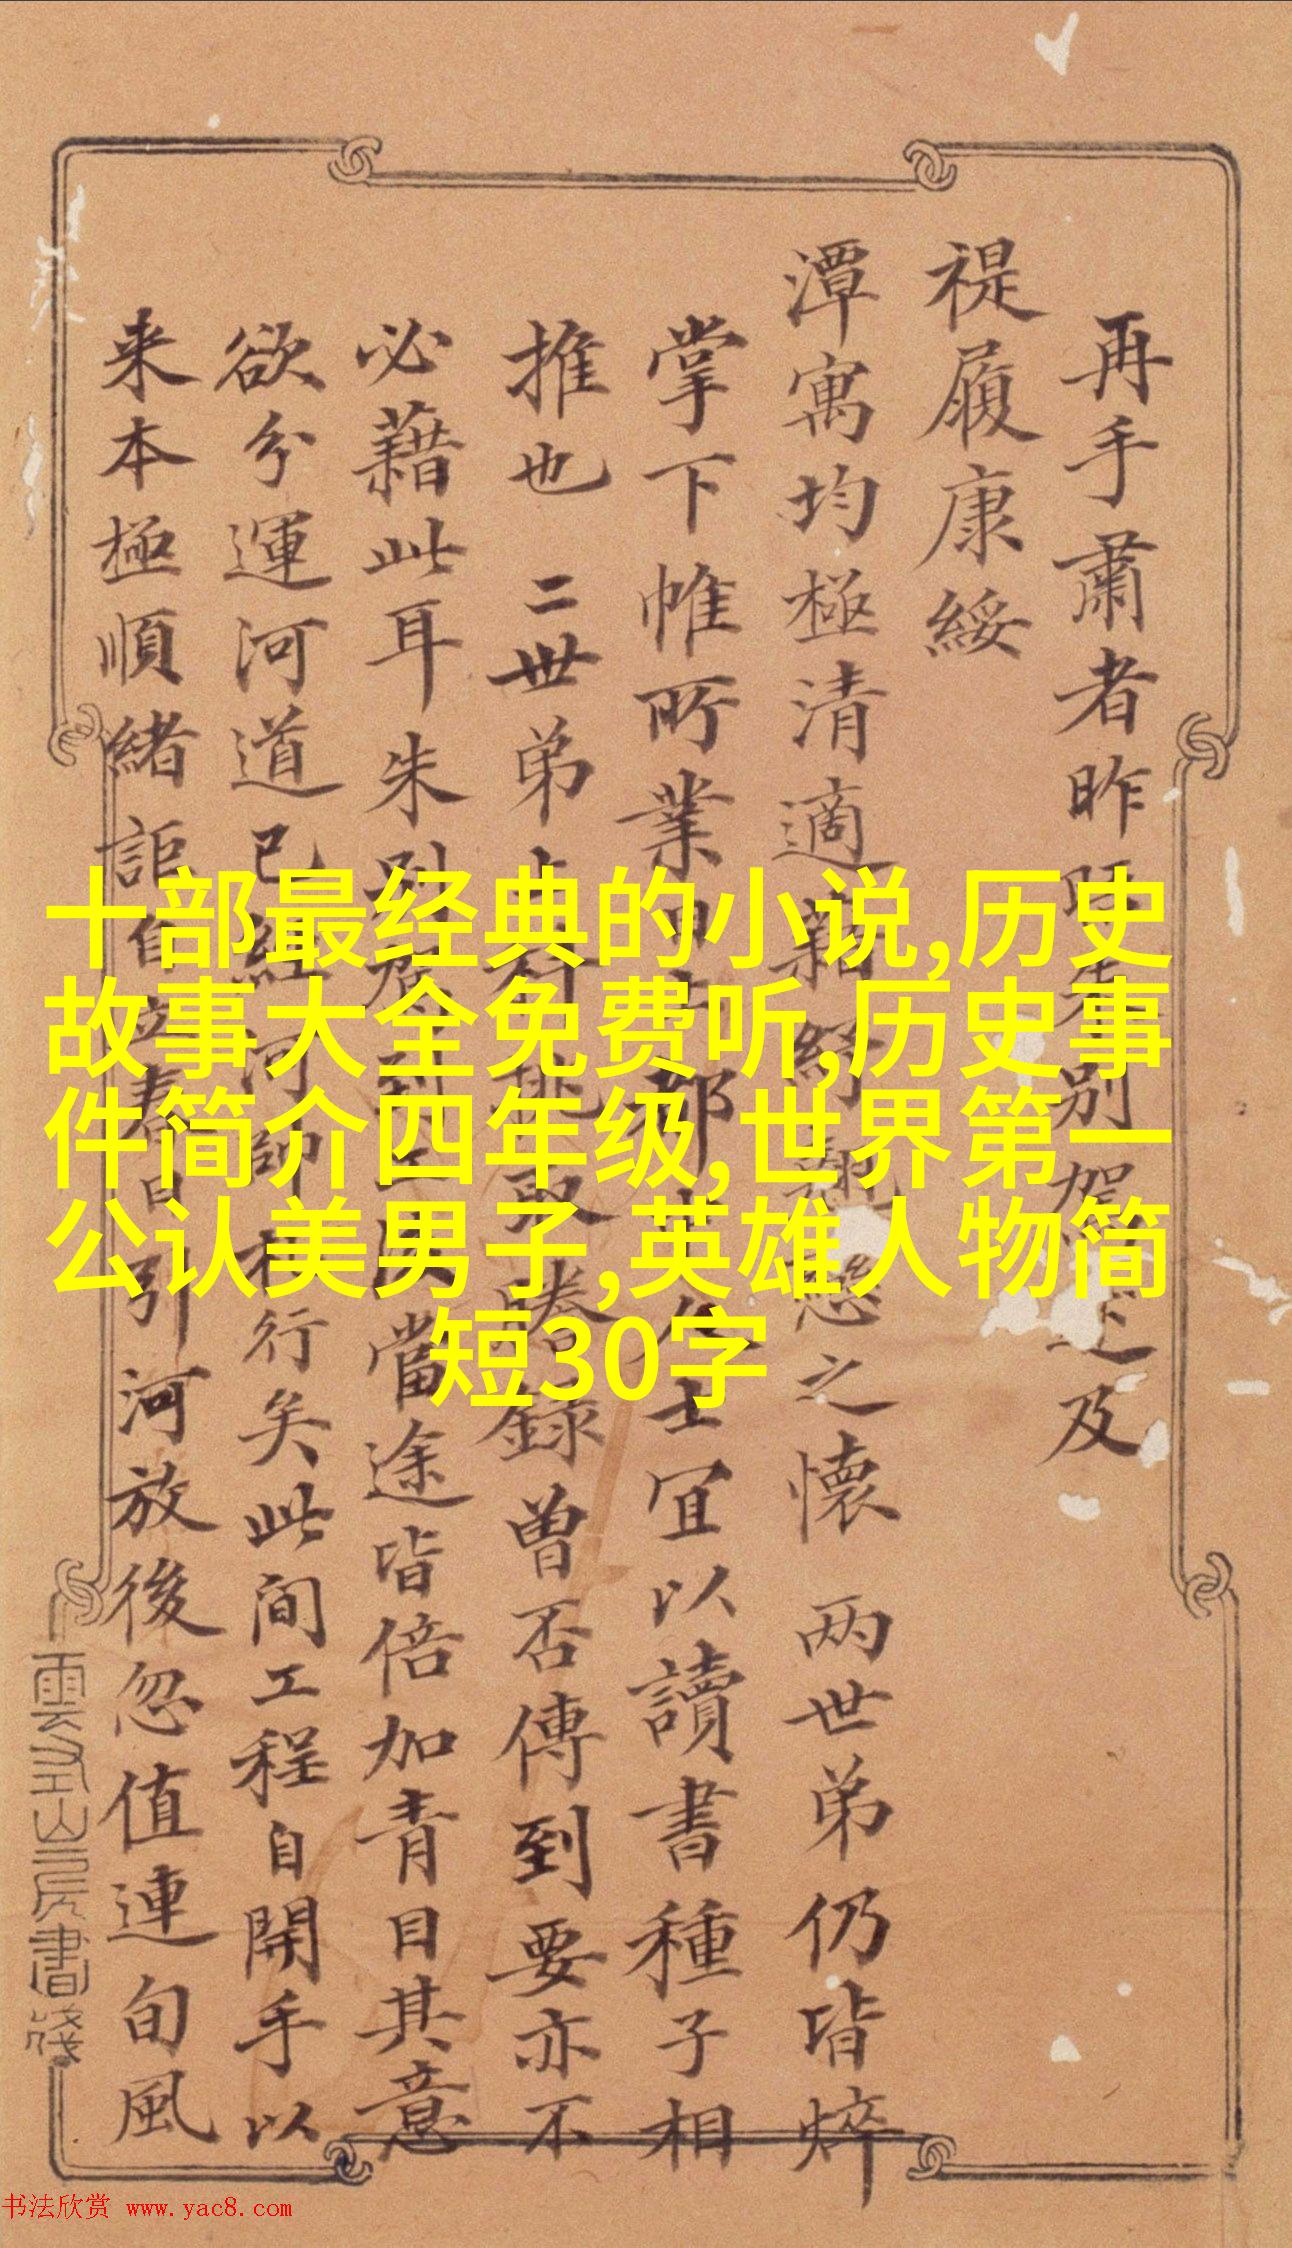 再手肅者昨
別
及
禔履康綏
潭寓均極清適
之懷两世弟仍皆焠
掌下帷所業
士宜以讀書種子相
推也二世弟
取
錄曾否傳到要亦不
必藉此耳朱
當途皆倍加青目其意
欲分運河道已經河帥
行矣此间工程自開手以
来本極順緒詎
引河放後忽值連旬風
十部最经典的小说,历史
故事大全免费听,历史事
件简介四年级,世界第一
公认美男子,英雄人物简
短30字
書法欣赏 www.yac8.com